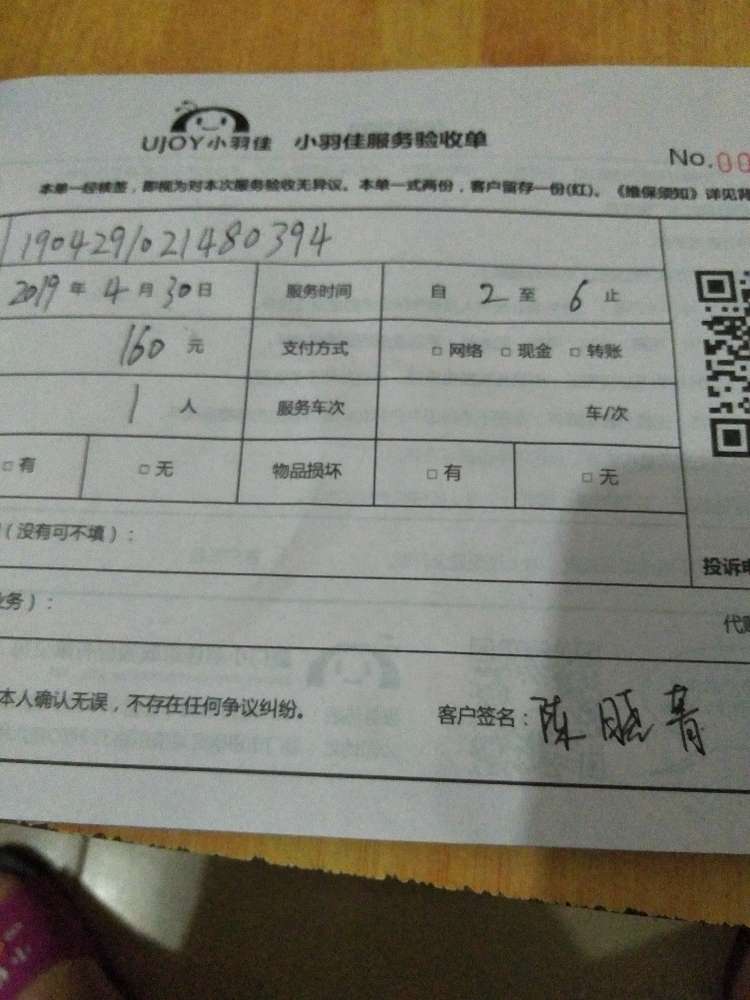 UJOY小羽佳 小羽佳服务验收单
No.00
本单一经核签，即视为对本次服务验收无异议。本单一式两份，客户留存一份(红)。《维保须知》详见背
190429102148​0394
2019年4月30日 服务时间 自2至6止
160元 支付方式 □网络 □现金 □转账
1人 服务车次 车/次
□有 □无 物品损坏 □有 □无
（没有可不填）：
投诉电
业务）：
代
本人确认无误，不存在任何争议纠纷。 客户签名：陈晓菁